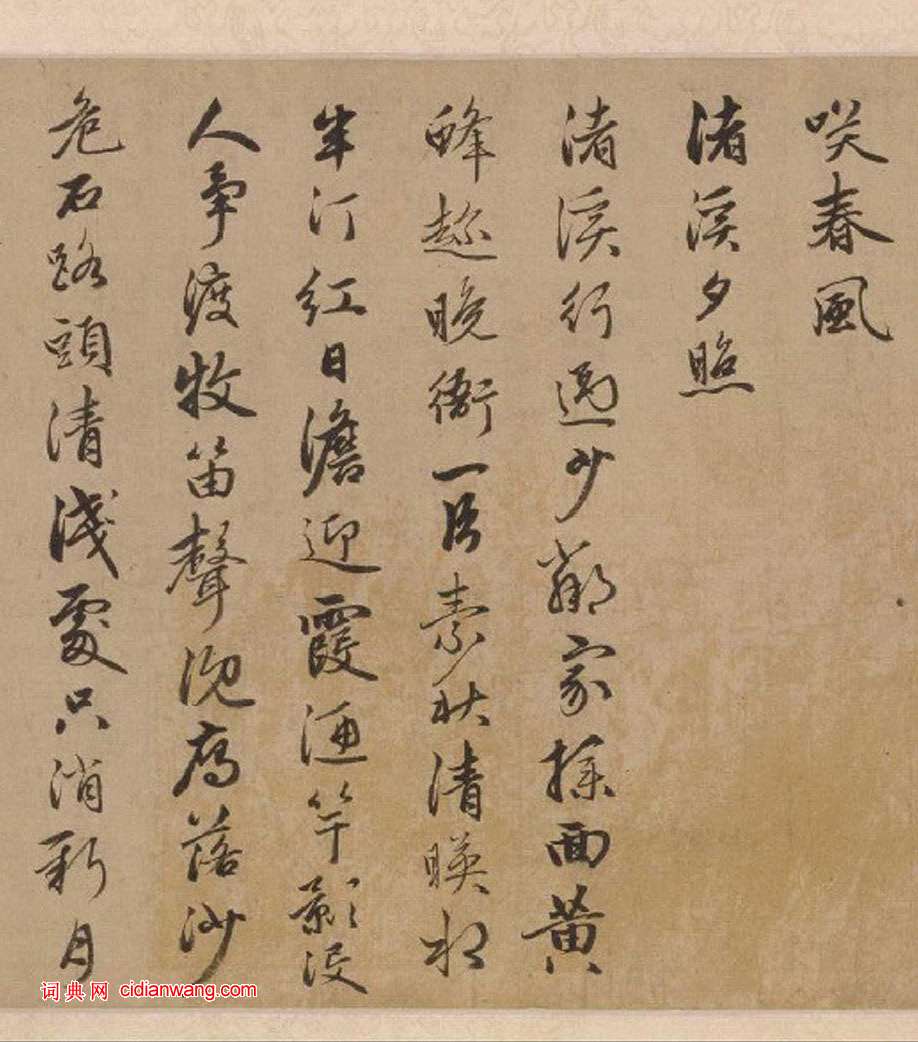 咲春風
渚溪夕照
渚溪行過少鄰家撲面黃
蜂趂晚衙一片素秋清暎水
半汀紅日澹迎霞漁竿影没
人爭渡牧笛聲沉鴈落沙
危石路頭清淺處只消新月
词典网 cidianwang.com